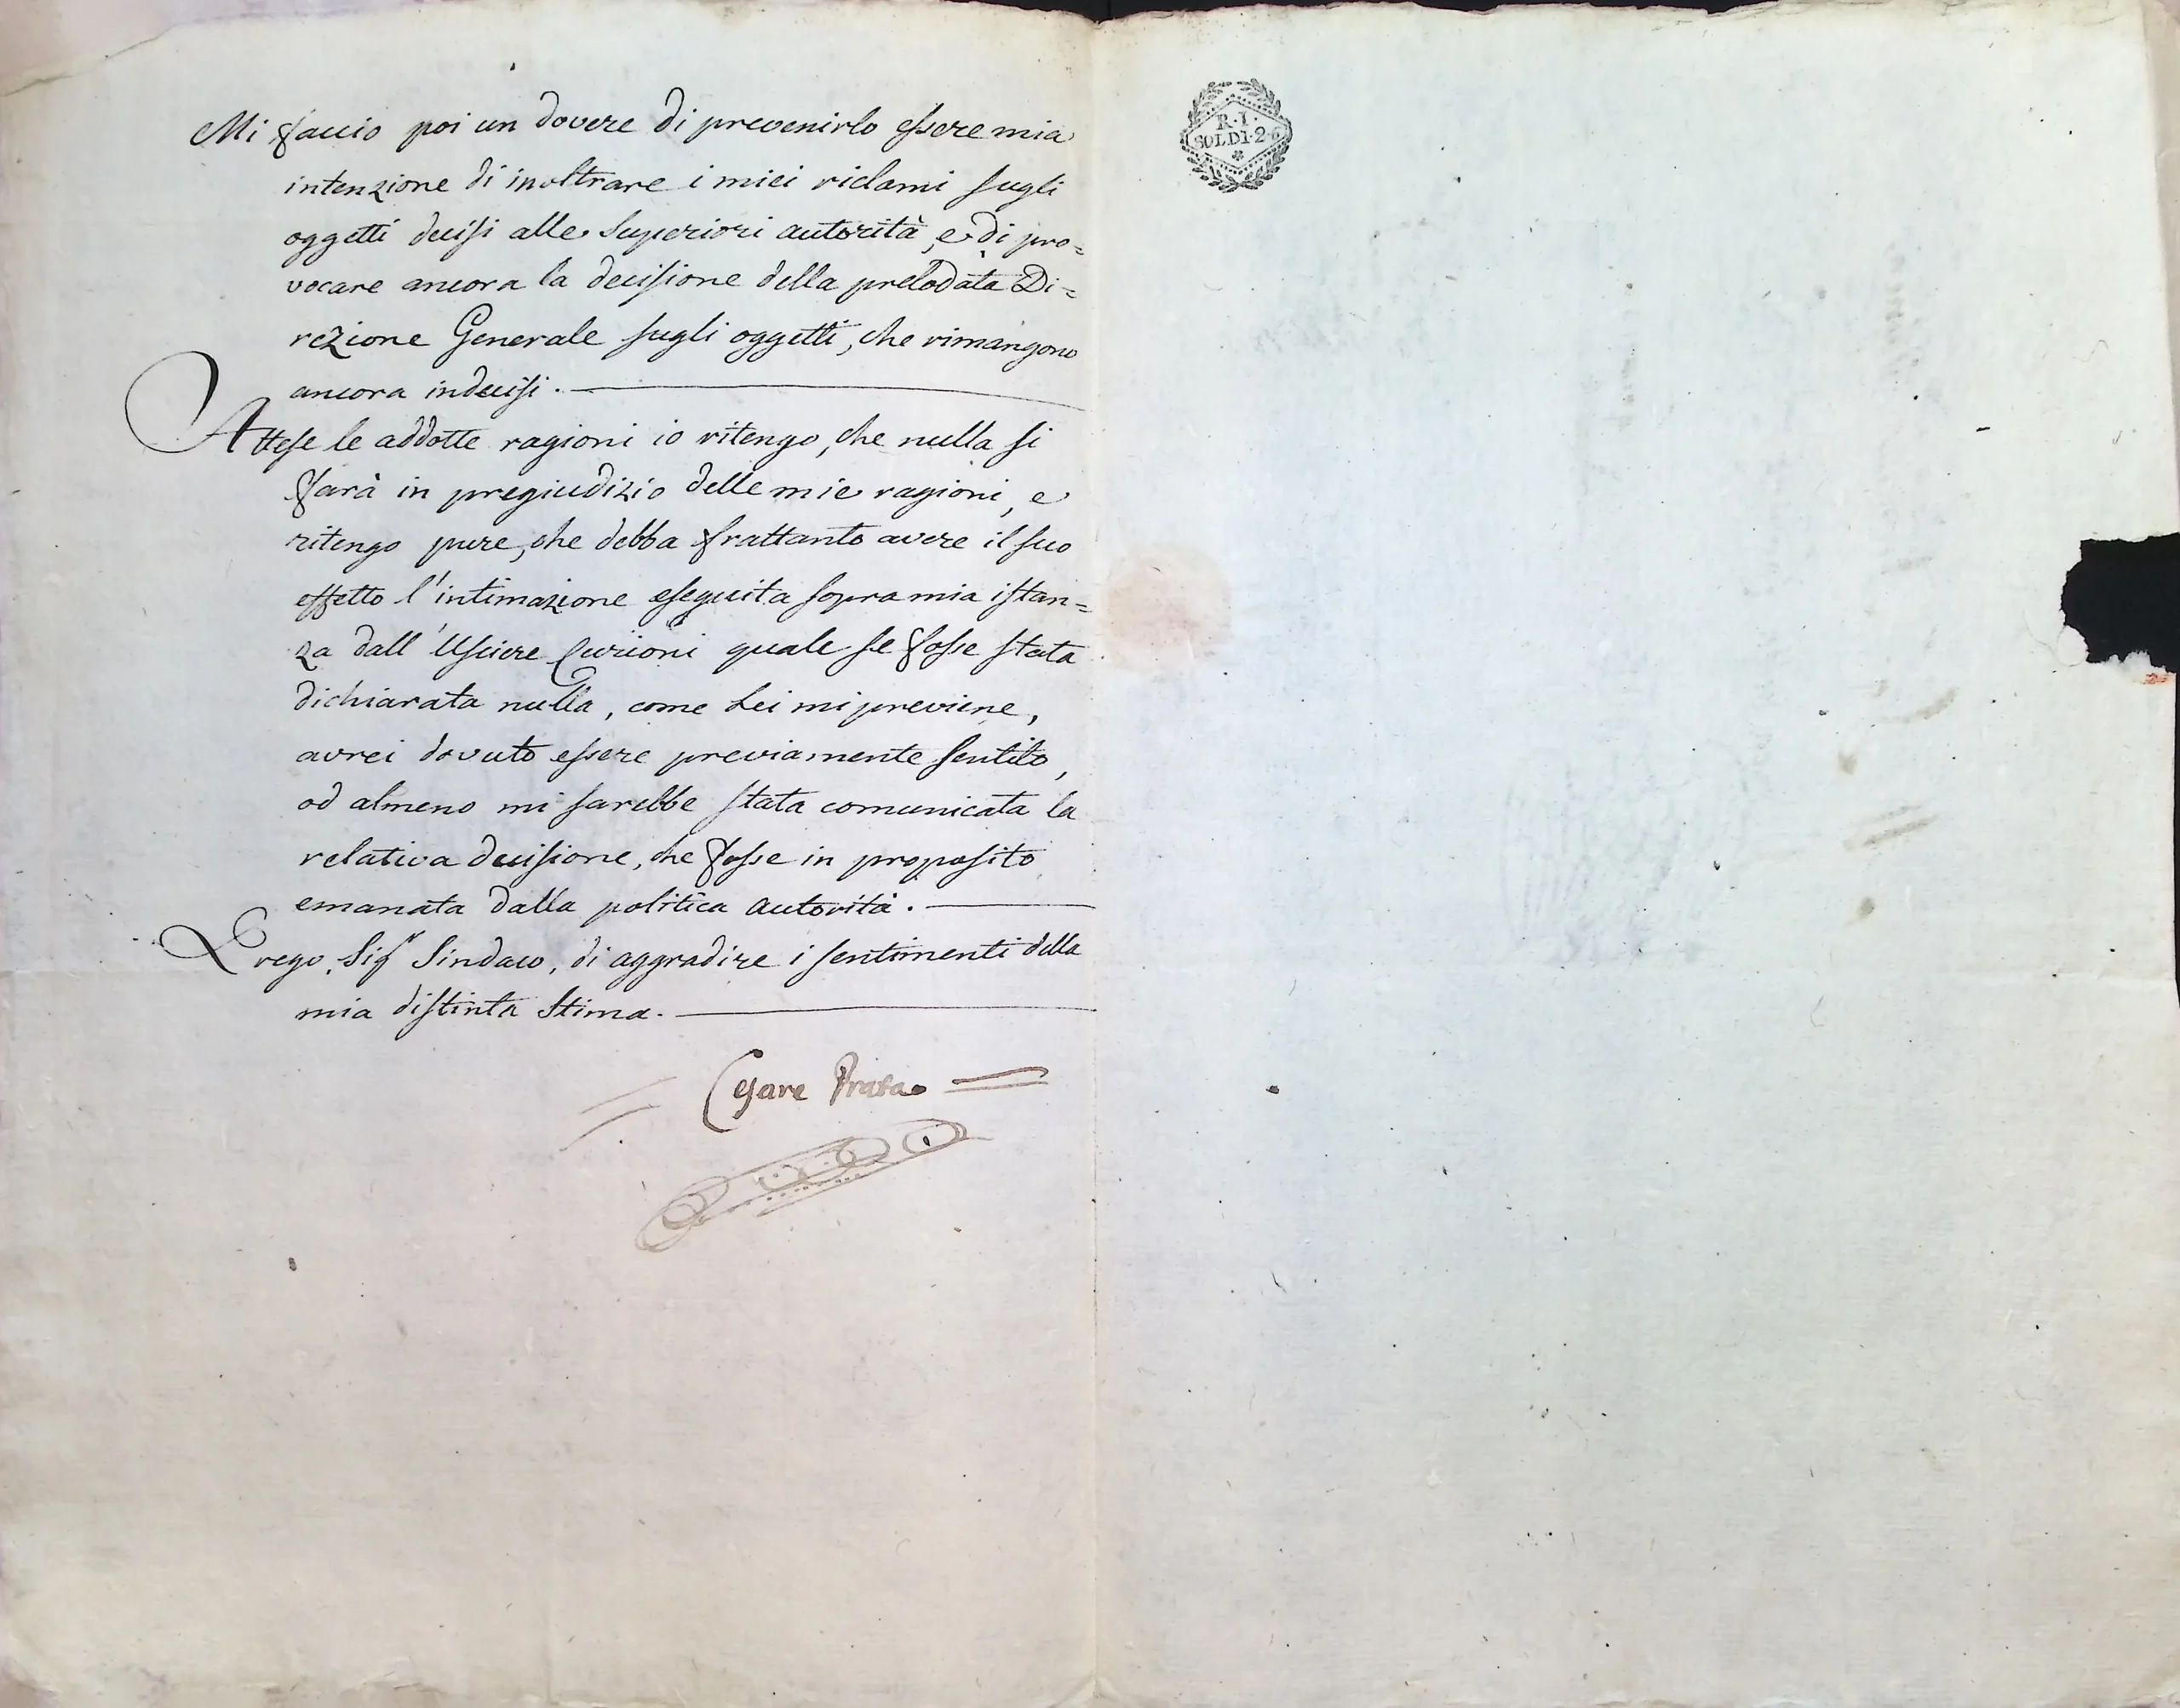 Mi faccio poi un dovere di prevenirlo essere mia
intenzione di inoltrare i miei riclami sugli
oggetti decisi alle Superiori autorità, e di pro=
vocare ancora la decisione della prelodata Di=
rezione Generale sugli oggetti, che rimangono
ancora indecisi.
Attese le addotte ragioni io ritengo, che nulla si
farà in pregiudizio delle mie ragioni, e
ritengo pure, che debba frattanto avere il suo
effetto l'intimazione eseguita sopra mia istan=
za dall'Usciere Curioni quale se fosse stata
dichiarata nulla, come Lei mi previene,
avrei dovuto essere previamente sentito,
od almeno mi sarebbe stata comunicata la
relativa decisione, che fosse in proposito
emanata dalla politica autorità.
Prego, Sigr Sindaco, di aggradire i sentimenti della
mia distinta Stima.
Cesare Prata
R.I.
SOLDI·2·6